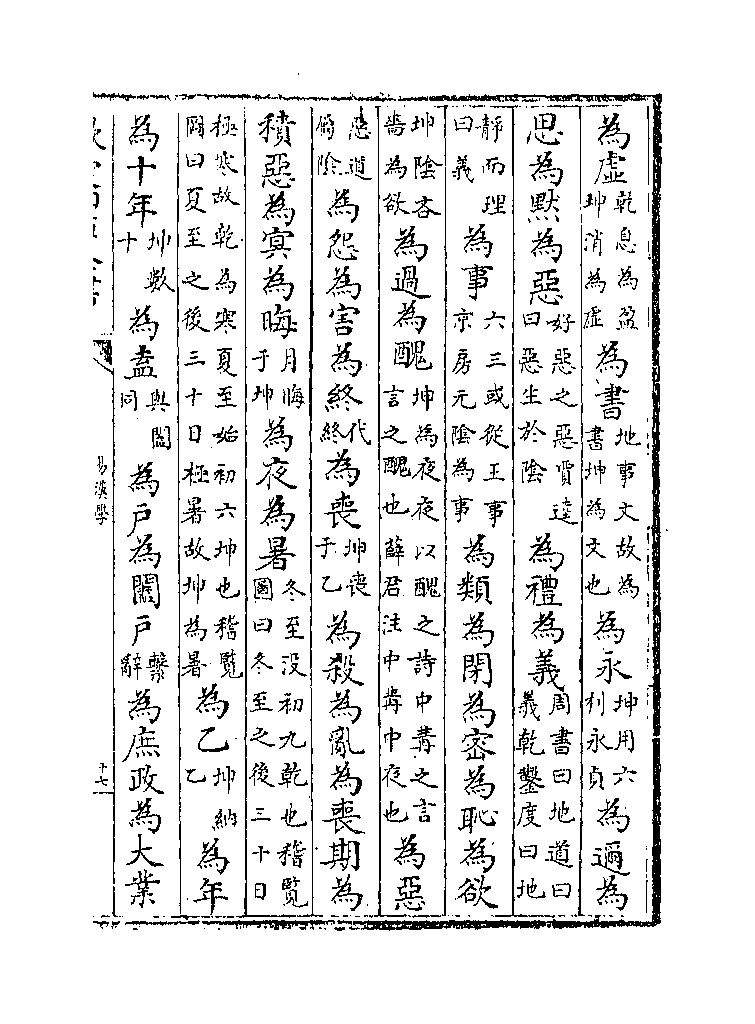 為虛乾息為盈坤消為虛為書地事文故為書坤為文也為永坤用六利永貞為邇為
思為默為惡好惡之惡賈逵曰惡生於陰為禮為義周書曰地道曰義乾鑿度曰地
靜而理曰義為事六三或從王事京房元陰為事為類為閉為密為恥為欲
坤陰吝嗇為欲為過為醜坤為夜夜以醜之詩中冓之言言之醜也薛君注中冓中夜也為惡
惡道屬陰為怨為害為終代終為喪坤喪于乙為殺為亂為喪期為
積惡為冥為晦月晦于坤為夜為暑冬至没初九乾也稽覽圖曰冬至之後三十日
極寒故乾為寒夏至始初六坤也稽覽圖曰夏至之後三十日極暑故坤為暑為乙坤納乙為年
為十年坤數十為盍與闔同為戶為闔戶繫辭為庶政為大業
易漢學
十七